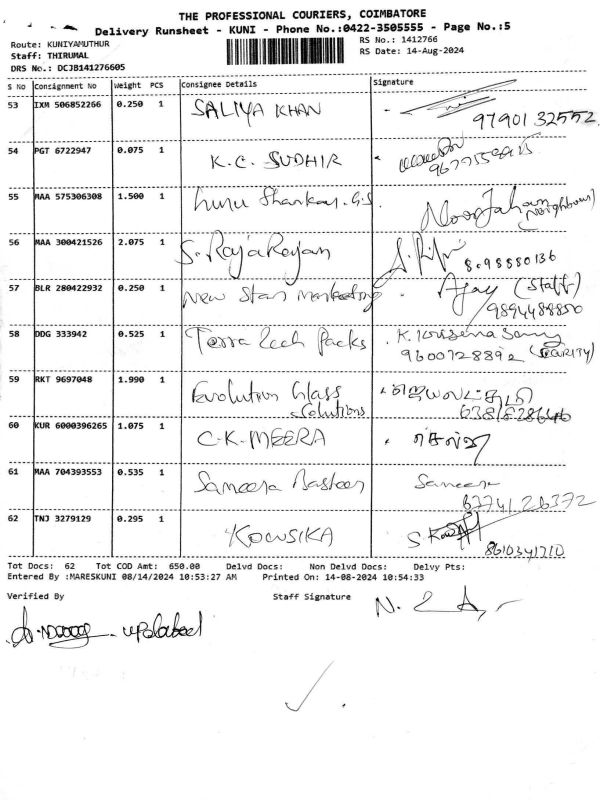 THE PROFESSIONAL COURIERS, COIMBATORE
Delivery Runsheet - KUNI - Phone No.:0422-3505555 - Page No.:5
Route: KUNIYAMUTHUR
RS No.: 1412766
Staff: THIRUMAL
RS Date: 14-Aug-2024
DRS No.: DCJB141276605
S No Consignment No Weight PCS Consignee Details Signature
53 IXM 506852266 0.250 1 SALIYA KHAN
97901 32552
54 PGT 6722947 0.075 1 K.C. SUDHIR
55 MAA 575306308 1.500 1 Shankar. G.S Noor Jahan
(Neighbour)
56 MAA 300421526 2.075 1 S. RajaRajan
8098880136
57 BLR 280422932 0.250 1 New Star Marketing Ajay (Staff)
9894488850
58 DDG 333942 0.525 1 Terra Tech Packs K.
9600728892
59 RKT 9697048 1.990 1 Evolution Glass
Solutions
60 KUR 6000396265 1.075 1 C.K. MEERA
61 MAA 704393553 0.535 1 Sameera Basheer Sameera
63741 26372
62 TNJ 3279129 0.295 1 KOWSIKA S
8610341710
Tot Docs: 62 Tot COD Amt: 650.00 Delvd Docs: Non Delvd Docs: Delvy Pts:
Entered By :MARESKUNI 08/14/2024 10:53:27 AM Printed On: 14-08-2024 10:54:33
Verified By Staff Signature
updated